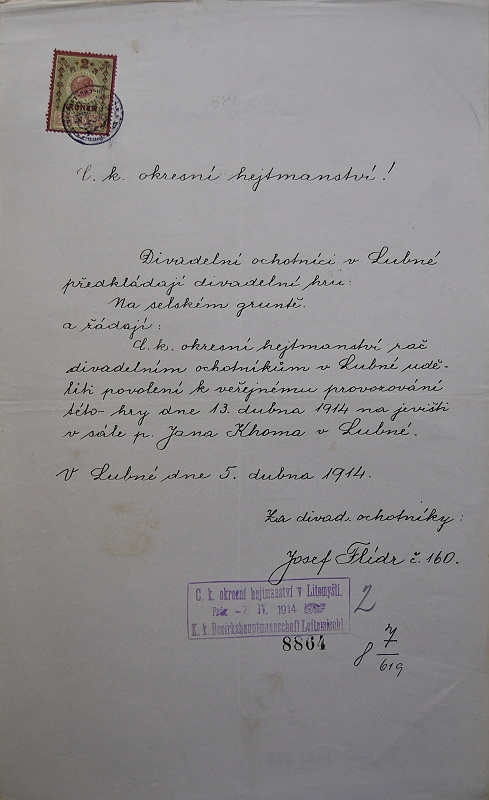 2
KRONEN
C. k. okresní hejtmanství!
Divadelní ochotníci v Lubné
předkládají divadelní hru:
Na selském gruntě.
a řádají:
C. k. okresní hejtmanství rač
divadelním ochotníkům v Lubné udě-
liti povolení k veřejnému provozování
této hry dne 13. dubna 1914 na jevišti
v sále p. Jana Khoma v Lubné.
V Lubné dne 5. dubna 1914.
Za divad. ochotníky:
Josef Flídr č. 160.
C. k. okresní hejtmanství v Litomyšli.
Präs. -7. IV. 1914
K. k. Bezirkshauptmannschaft Leitomischl
2
8864
8 7
619